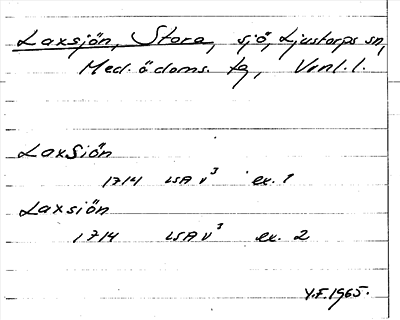 Laxsjön, Stora, sjö, Ljustorps sn,
Medelpads. tg, Vnl. l.
LaxSiön
1714 LSA V³ ex. 1
Laxsiön
1714 LSA V³ ex. 2
Y.F. 1965.